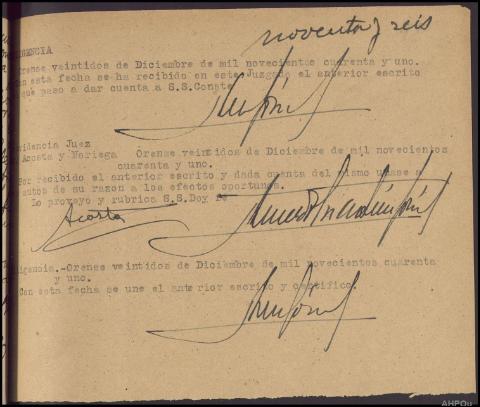 noventa y seis
GENCIA
Orense veintidos de Diciembre de mil novecientos cuarenta y uno.
Con esta fecha se ha recibido en este Juzgado el anterior escrito
que paso a dar cuenta a S.S. Conste
videncia Juez
Acosta y Noriega Orense veintidos de Diciembre de mil novecientos
cuarenta y uno.
Por recibido el anterior escrito y dada cuenta del mismo unase a
autos de su razon a los efectos oportunos.
Lo proveyo y rubrica S.S. Doy fe
Acosta
igencia.-Orense veintidos de Diciembre de mil novecientos cuarenta
y uno.
Con esta fecha se une el anterior escrito y certifico.
AHPOu